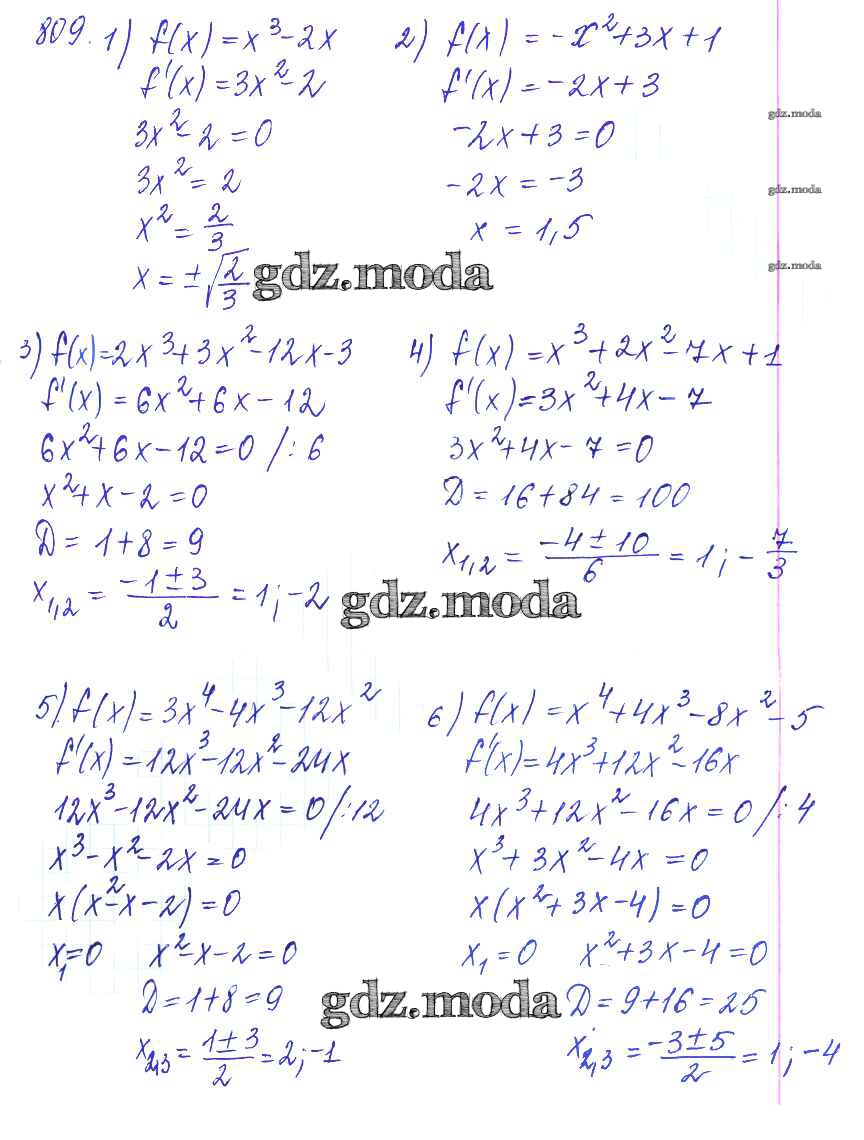 809. 1) f(x) = x³ - 2x
f'(x) = 3x² - 2
3x² - 2 = 0
3x² = 2
x² = 2/3
x = ±√(2/3)
2) f(x) = -x² + 3x + 1
f'(x) = -2x + 3
-2x + 3 = 0
-2x = -3
x = 1,5
gdz.moda
gdz.moda
gdz.moda
gdz.moda
3) f(x) = 2x³ + 3x² - 12x - 3
f'(x) = 6x² + 6x - 12
6x² + 6x - 12 = 0 /: 6
x² + x - 2 = 0
D = 1 + 8 = 9
x₁,₂ = (-1 ± 3)/2 = 1; -2
4) f(x) = x³ + 2x² - 7x + 1
f'(x) = 3x² + 4x - 7
3x² + 4x - 7 = 0
D = 16 + 84 = 100
x₁,₂ = (-4 ± 10)/6 = 1; -7/3
gdz.moda
5) f(x) = 3x⁴ - 4x³ - 12x²
f'(x) = 12x³ - 12x² - 24x
12x³ - 12x² - 24x = 0 /: 12
x³ - x² - 2x = 0
x(x² - x - 2) = 0
x₁ = 0 x² - x - 2 = 0
D = 1 + 8 = 9
x₂,₃ = (1 ± 3)/2 = 2; -1
6) f(x) = x⁴ + 4x³ - 8x² - 5
f'(x) = 4x³ + 12x² - 16x
4x³ + 12x² - 16x = 0 /: 4
x³ + 3x² - 4x = 0
x(x² + 3x - 4) = 0
x₁ = 0 x² + 3x - 4 = 0
D = 9 + 16 = 25
x₂,₃ = (-3 ± 5)/2 = 1; -4
gdz.moda